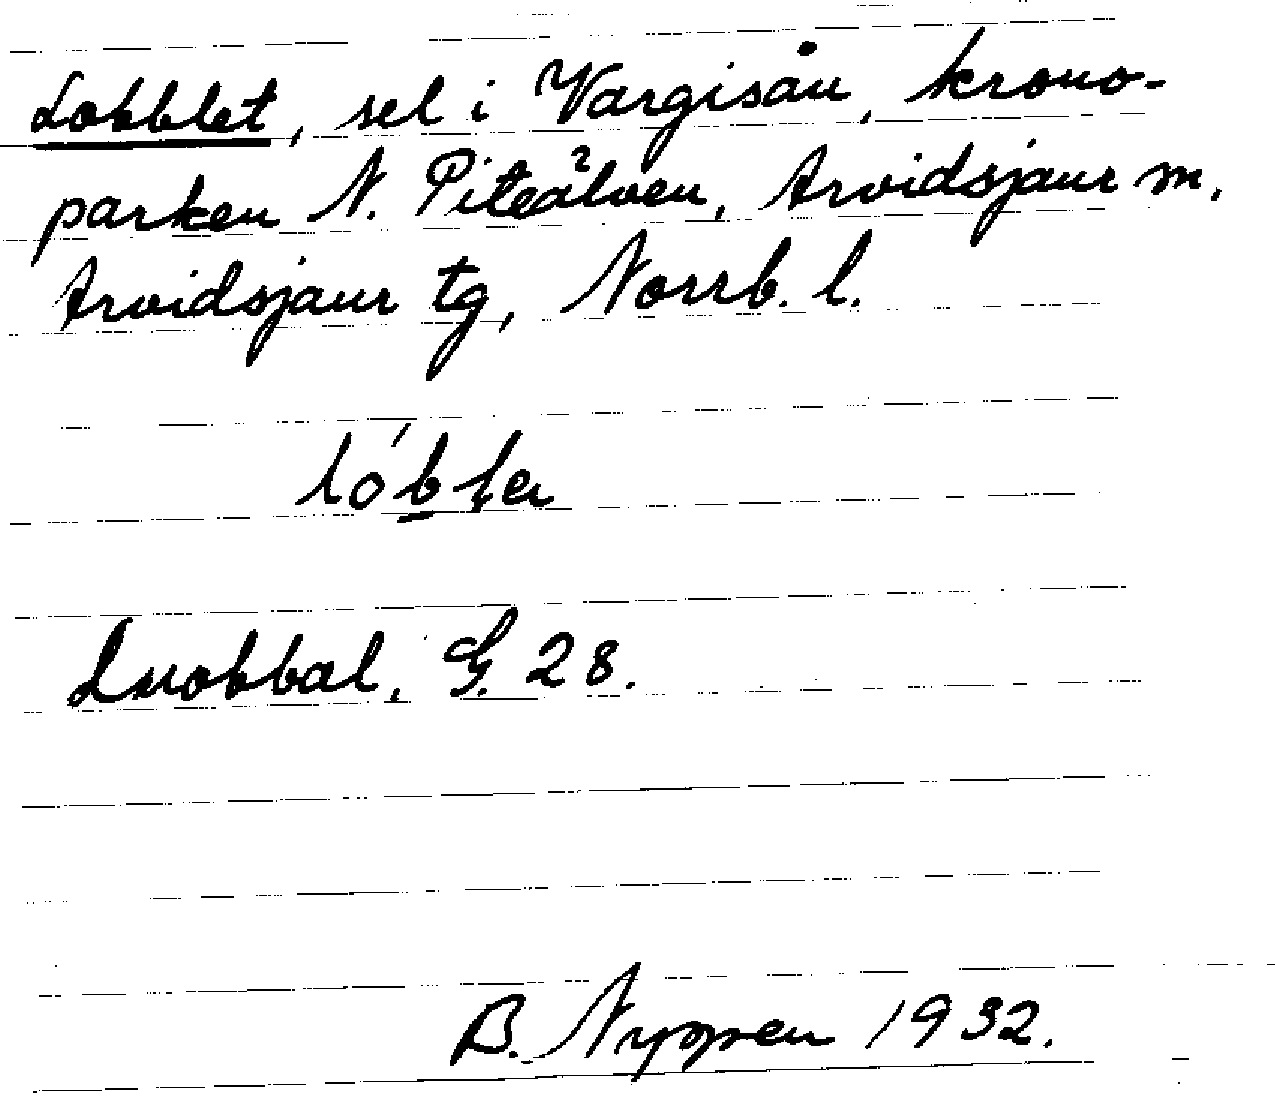 Lobblet, sel i Vargisån, krono-
parken N. Piteälven, Arvidsjaur sn,
Arvidsjaur tg, Norrb. l.
Luobbal, G. 28.
B. Nyppen 1932.